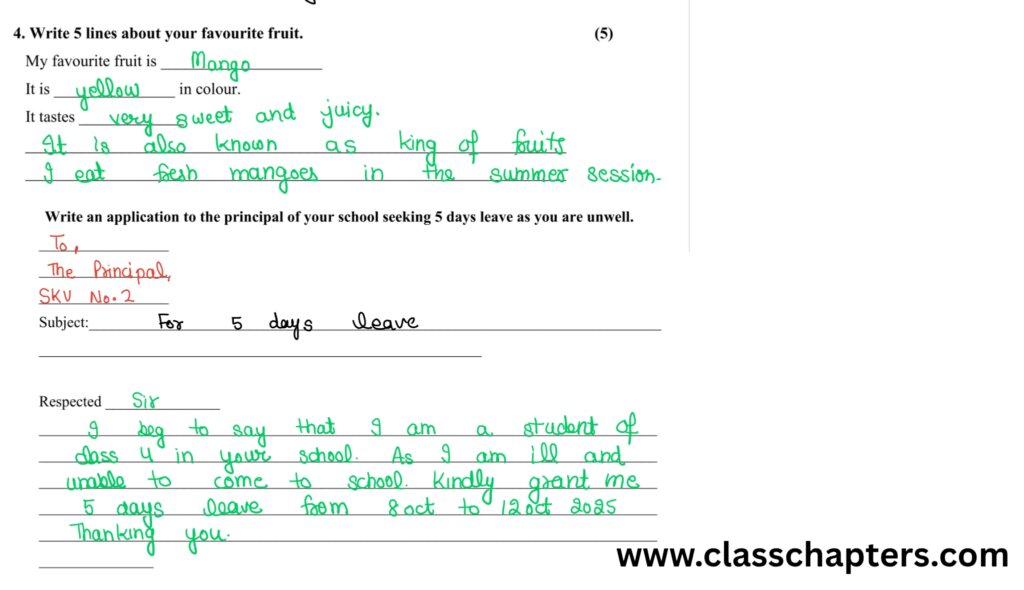 4. Write 5 lines about your favourite fruit. (5)
My favourite fruit is Mango
It is yellow in colour.
It tastes very sweet and juicy.
It is also known as king of fruits
I eat fresh mangoes in the summer session.
Write an application to the principal of your school seeking 5 days leave as you are unwell.
To,
The Principal,
SKV No.2
Subject: For 5 days leave
Respected Sir
I beg to say that I am a student of
class 4 in your school. As I am ill and
unable to come to school. Kindly grant me
5 days leave from 8 oct to 12 oct 2025
Thanking you.
www.classchapters.com